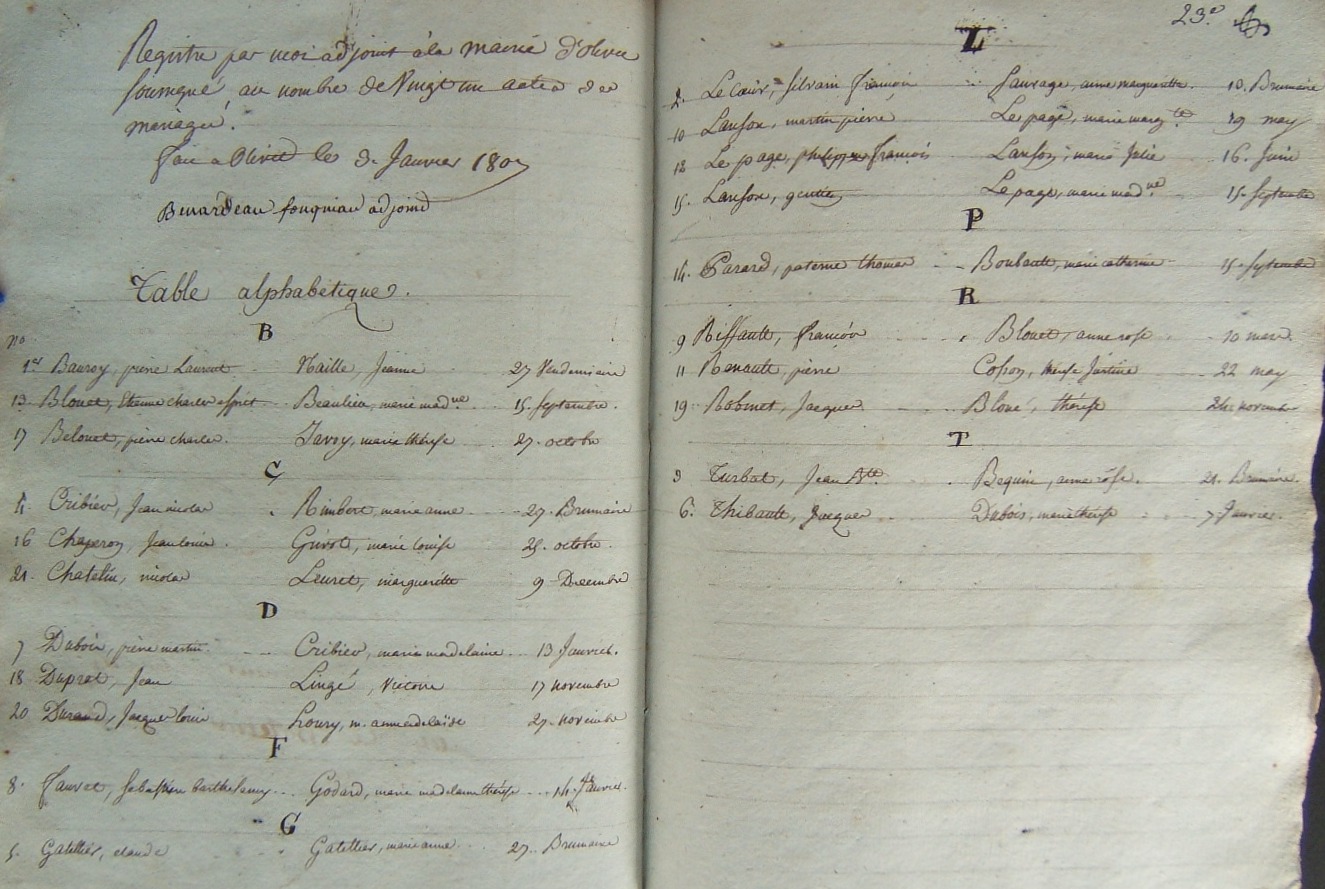 Registre par moi adjoint à la mairie d'olivet
soussigné, au nombre de Vingt un actes de
mariages.
fait a Olivet le 3. Janvier 180
adjoint
Table alphabetique.
B
no
1er Bauroy, pierre Laurent Naille, Jeanne 27 Vendemiaire
13 Blouet, Etienne charles esprit Beaulieu, marie madne 15. septembre.
17 Belouet, pierre charles. Javoy, marie thérèse 27. octobre
C
4. Cribier, Jean nicolas Rimbert, marie anne 27. Brumaire
16 Chaperon, Jean louis Girot, marie louise 25. octobre.
21. Chatelin, nicolas Leuret, margueritte 9 Decembre
D
7 Dubois, pierre martin. Cribier, marie madelaine 13 Janvier.
18 Duprat, Jean Lingé, Victoire 17 novembre
20 Durand, Jacques louis Loury, m. anne adelaïde 27. novembre
F
8. Fauret, Sebastien barthelemy Godard, marie madelaine thérèse 14. Janvier.
G
5. Gatellier, claude Gatellier, marie anne 27. Brumaire
23.e
L
2. Le Cœur, silvain françois Sauvage, anne margueritte. 10. Brumaire
10 Lanson, martin pierre Le page, marie margte 19 may
12 Le page, philippe françois Lanson, marie Julie 16. Juin
15. Lanson, gentien Le page, marie madne 15. septembre
P
14. Parard, paterne thomas Boubault, marie catherine 15. septembre
R
9 Riffault, françois Blouet, anne rose 10 mars.
11 Renault, pierre thérèse Justine 22 may
19 Robinet, Jacques Bloué, thérèse 24. novembre
T
3 Turbat, Jean Bte. Bequin, anne rose. 21. Brumaire.
6. Thibault, Jacques Dubois, marie thérèse 7 Janvier.